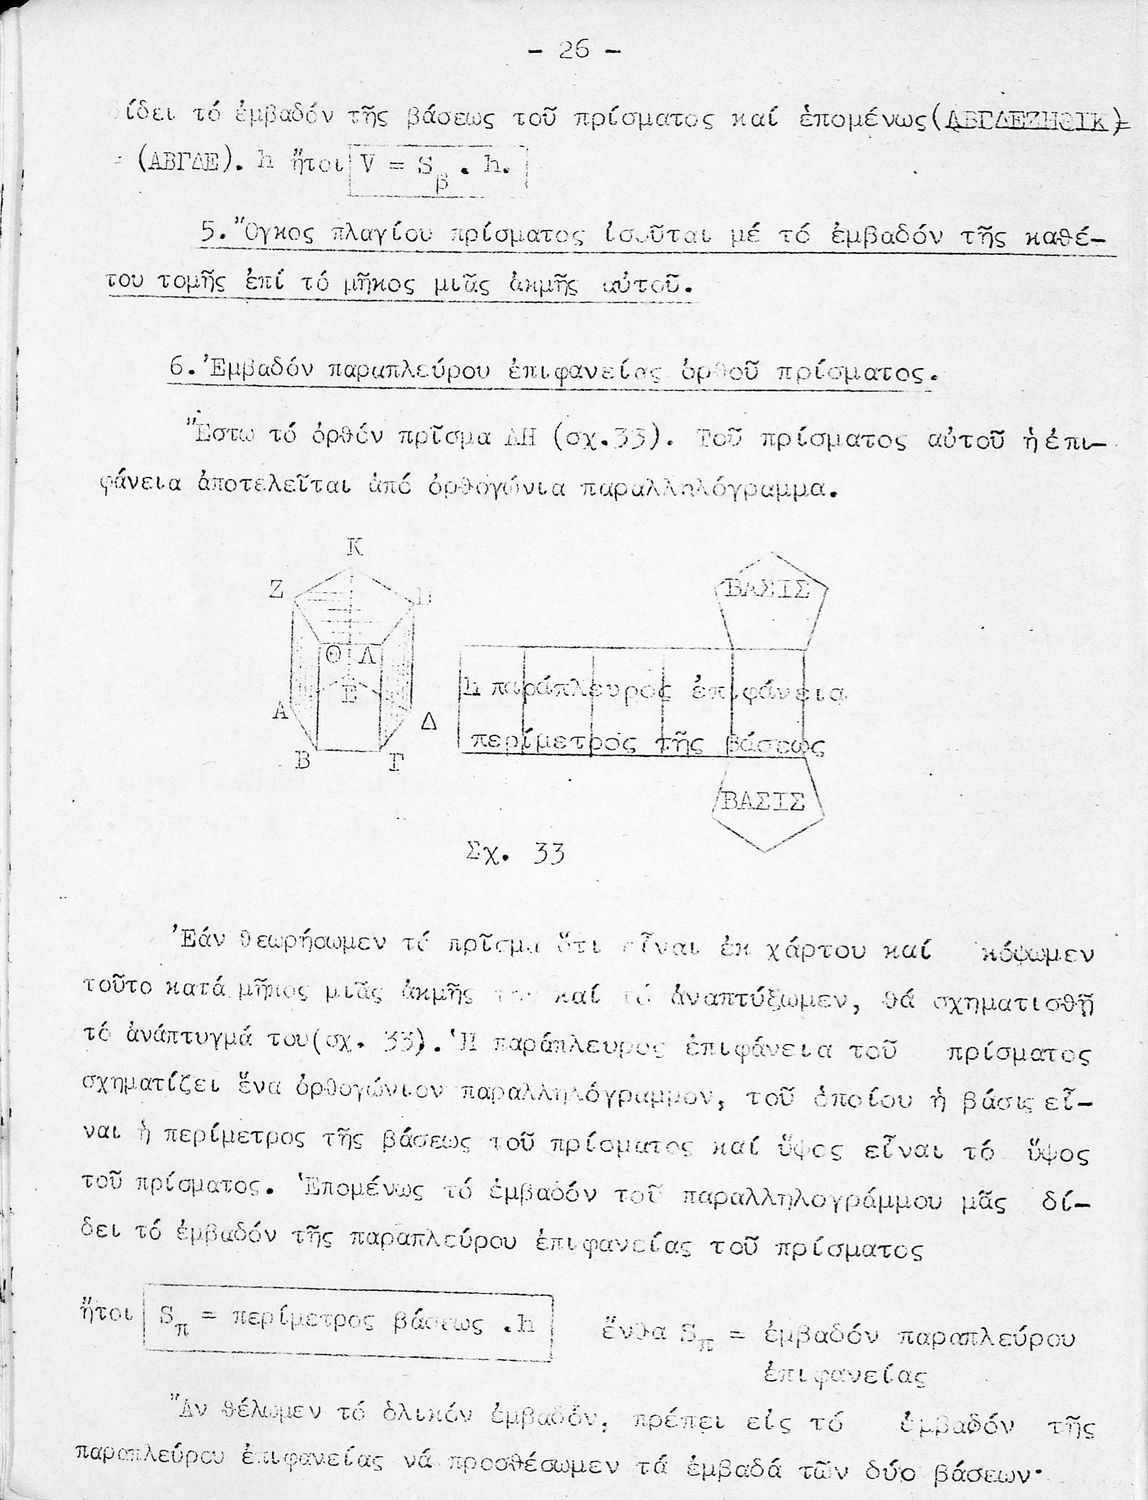 - 26 -
ίδει τό ἐμβαδόν τῆς βάσεως τοῦ πρίσματος καί ἑπομένως(ΑΒΓΔΕΖΗΘΙΚ)=
= (ΑΒΓΔΕ). h ἤτοι V = Sβ . h.
5."Ογκος πλαγίου πρίσματος ἰσοῦται μέ τό ἐμβαδόν τῆς καθέ-
του τομῆς ἐπί τό μῆκος μιᾶς ἀκμῆς αὐτοῦ.
6.'Εμβαδόν παραπλεύρου ἐπιφανείας ὀρθοῦ πρίσματος.
"Εστω τό ὀρθόν πρῖσμα ΔΗ (σχ.33). Τοῦ πρίσματος αὐτοῦ ἡ ἐπι-
φάνεια ἀποτελεῖται ἀπό ὀρθογώνια παραλληλόγραμμα.
Κ
Ζ
Θ Λ
Ε
Α
Δ
Β Γ
ΒΑΣΙΣ
h παράπλευρος ἐπιφάνεια
περίμετρος τῆς βάσεως
ΒΑΣΙΣ
Σχ. 33
'Εάν θεωρήσωμεν τό πρῖσμα ὅτι εἶναι ἐκ χάρτου καί κόψωμεν
τοῦτο κατά μῆκος μιᾶς ἀκμῆς του καί τό ἀναπτύξωμεν, θά σχηματισθῇ
τό ἀνάπτυγμά του(σχ. 33). Ἡ παράπλευρος ἐπιφάνεια τοῦ πρίσματος
σχηματίζει ἕνα ὀρθογώνιον παραλληλόγραμμον, τοῦ ὁποίου ἡ βάσις εἶ-
ναι ἡ περίμετρος τῆς βάσεως τοῦ πρίσματος καί ὕψος εἶναι τό ὕψος
τοῦ πρίσματος. Ἑπομένως τό ἐμβαδόν τοῦ παραλληλογράμμου μᾶς δί-
δει τό ἐμβαδόν τῆς παραπλεύρου ἐπιφανείας τοῦ πρίσματος
ἤτοι Sπ = περίμετρος βάσεως .h ἔνθα Sπ = ἐμβαδόν παραπλεύρου
ἐπιφανείας
"Αν θέλωμεν τό ὁλικόν ἐμβαδόν, πρέπει εἰς τό ἐμβαδόν τῆς
παραπλεύρου ἐπιφανείας νά προσθέσωμεν τά ἐμβαδά τῶν δύο βάσεων·